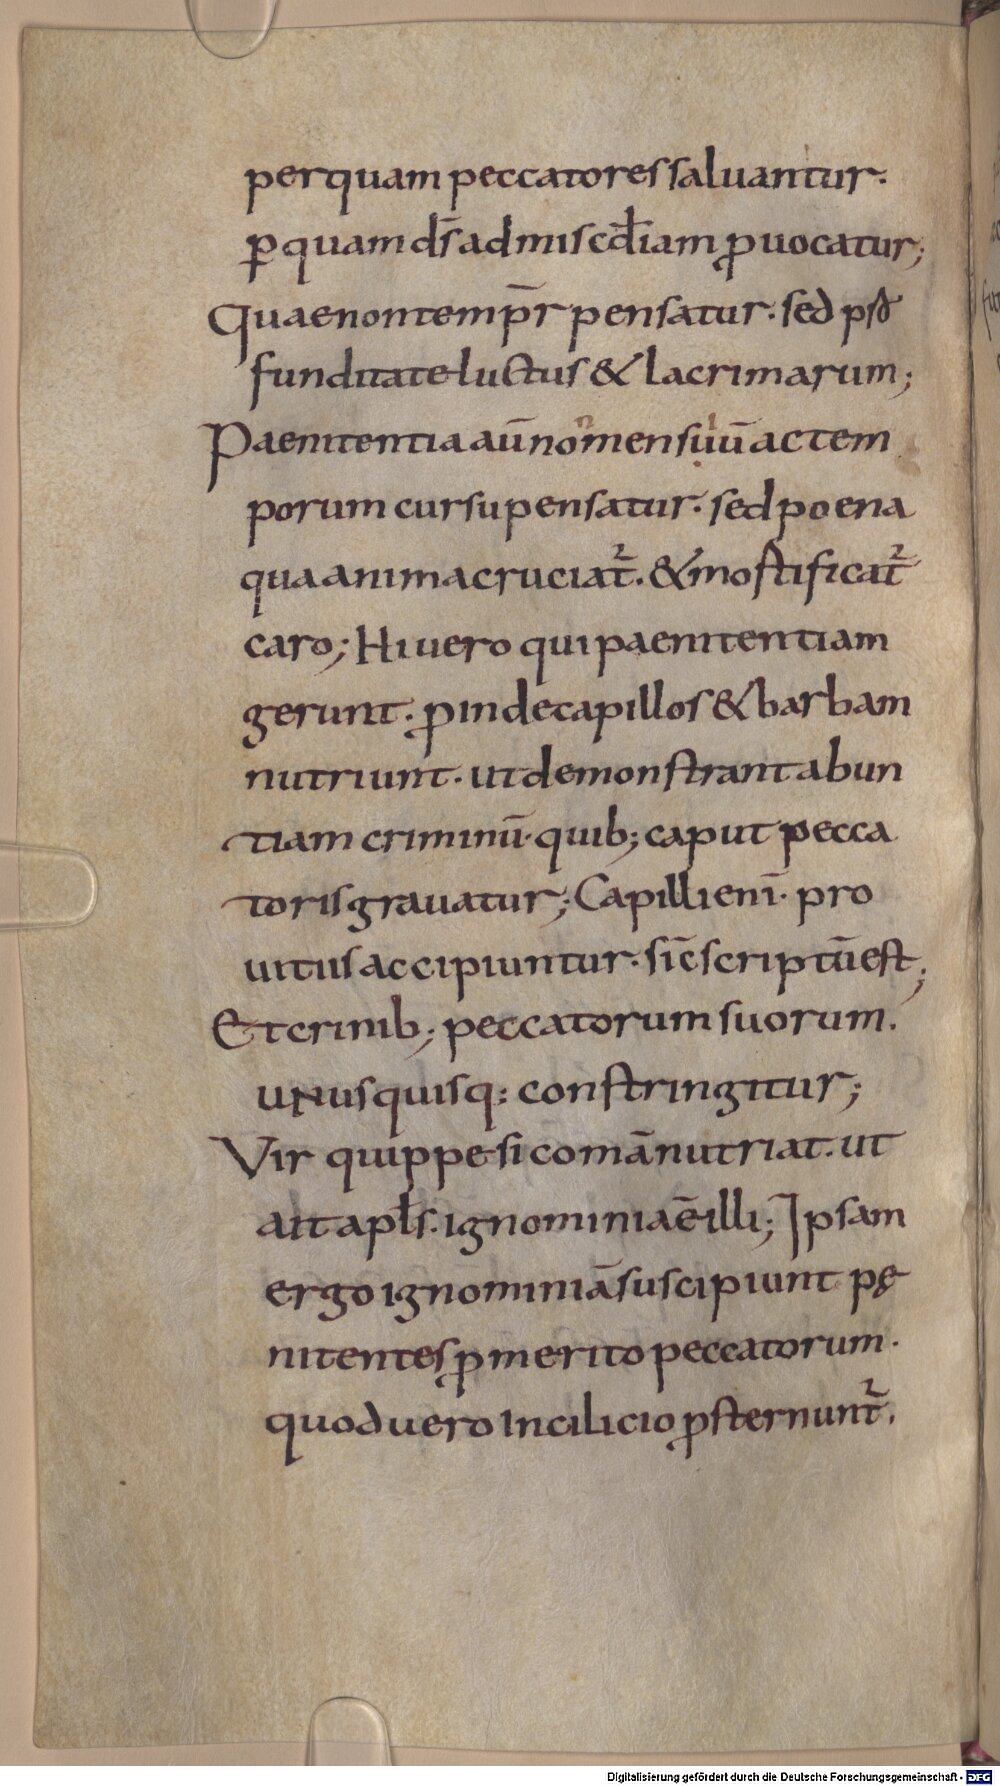 per quam peccatores saluantur.
ꝑ quam ds̄ ad miscd̄iam ꝓuocatur;
Quae non temp̄r pensatur. sed
funditate luctus & lacrimarum;
Paenitentia aū non mensuū ac tem
porum cursu pensatur. sed poena
qua anima cruciat̄. & mostificat̄
caro; Hi uero qui paenitentiam
gerunt. ꝓinde capillos & barbam
nutriunt. ut demonstrant abun
tiam criminū. quib; caput pecca
toris grauatur; Capilli eni̅. pro
uitus accipiuntur. sic̄ scriptū est;
Et crinib; peccatorum suorum.
unusquisq: constringitur;
Vir quippe si comā nutriat. ut
ait apłs. ignominia ē illi; Ipsam
ergo ignominiā suscipiunt pę
nitentes ꝓ merito peccatorum.
quod uero in cilicio ꝓsternunt̄.
Digitalisierung gefördert durch die Deutsche Forschungsgemeinschaft - DFG